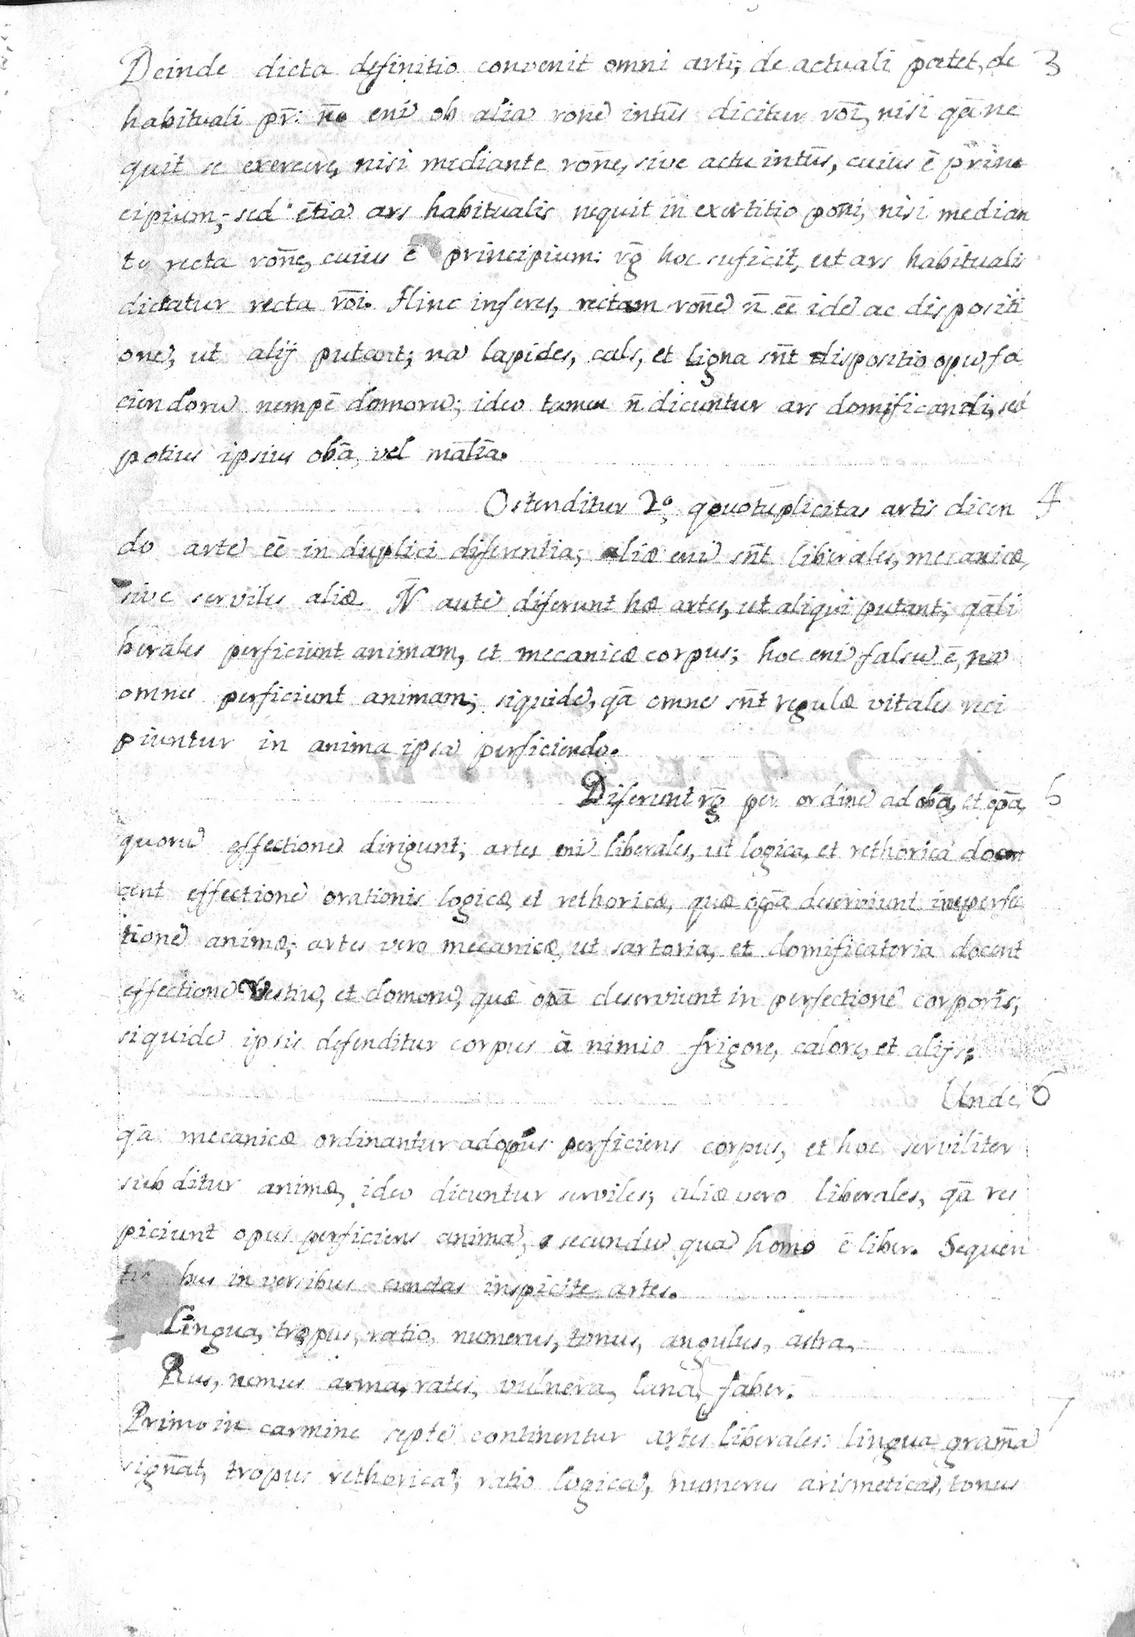 Deinde dicta definitio convenit omni arti; de actuali patet, de 3
habituali pr̄: n̄o enī ob alia ronē intūs dicitur roī, nisi qā ne
quit se exercere, nisi mediante ronē, sive actu intūs, cuius ē prin
cipium; sed ētia ars habitualis nequit in exertitio poni, nisi median
te recta ronē, cuius ē principium: rg̃ hoc suficit, ut ars habitualis
dicatur recta roī. Hinc inferes, rectam ronē n̄ eē idē ac dispositi
onē, ut alij putant; nā lapides, cals, et ligna snt̄ dispositio opū, fa
ciendorū nempē domorū; ideo tamen n̄ dicuntur ars domificandi, sed
potius ipsius obā, vel matīa.
Ostenditur 2.º quotuplicitas artis dicen 4
do artē eē in duplici diferentia; aliæ enī snt̄ liberales, mecanicæ,
sive serviles aliæ. N̄ autē diferunt hæ artes, ut aliqui putant; qā li
berales perficiunt animam, et mecanicæ corpus; hoc enī falsū ē, nā
omnes perficiunt animam; siquidē, qā omnes snt̄ regulæ vitales reci
piuntur in anima ipsā perficiendo.
Diferunt rg̃ per ordinē ad obā, et opā, 5
quorū effectionē dirigunt; artes enī liberales, ut logica, et rethorica docent
effectionē orationis logicæ, et rethoricæ, quæ opā deserviunt in perfe
tionē animæ; artes vero mecanicæ, ut sartoria, et domificatoria docent
effectionē vestiū, et domorū, quæ opā deserviunt in perfectionē corporis;
siquidē ipsis defenditur corpus à nimio frigore, calore, et alijs;
Unde 6
qā mecanicæ ordinantur ad opus perficiens corpus, et hoc serviliter
subditur animæ, ideo dicuntur serviles; aliæ vero liberales, qā res
piciunt opus perficiens animā, secundū quā homo ē liber. Sequen
tibus in versibus cunctas inspicite artes.
Lingua, tropus, ratio, numerus, tonus, angulus, astra,
Rus, nemus arma, rates, vulnera, lana, faber.
Primo in carmine septē continentur artes liberales: lingua gram̄a 7
signāt, tropus rethoricā; ratio logicā, numerus arismeticā, tonus